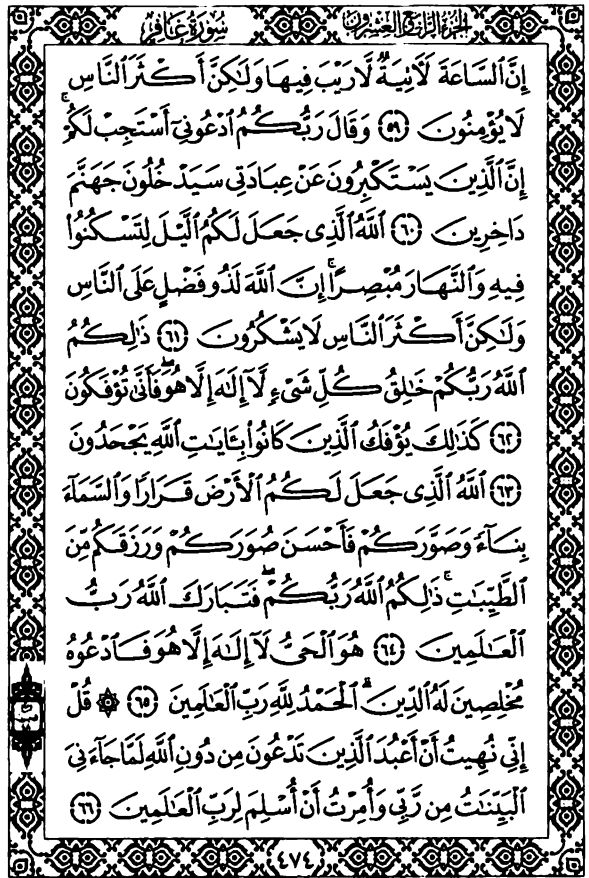 الجزء الرابع والعشرون
سورة غافر
إِنَّ ٱلسَّاعَةَ لَءَاتِيَةٌ لَّا رَيْبَ فِيهَا وَلَٰكِنَّ أَكْثَرَ ٱلنَّاسِ
لَا يُؤْمِنُونَ ﴿٥٩﴾ وَقَالَ رَبُّكُمُ ٱدْعُونِىٓ أَسْتَجِبْ لَكُمْ ۚ
إِنَّ ٱلَّذِينَ يَسْتَكْبِرُونَ عَنْ عِبَادَتِى سَيَدْخُلُونَ جَهَنَّمَ
دَاخِرِينَ ﴿٦٠﴾ ٱللَّهُ ٱلَّذِى جَعَلَ لَكُمُ ٱلَّيْلَ لِتَسْكُنُوا۟
فِيهِ وَٱلنَّهَارَ مُبْصِرًا ۚ إِنَّ ٱللَّهَ لَذُو فَضْلٍ عَلَى ٱلنَّاسِ
وَلَٰكِنَّ أَكْثَرَ ٱلنَّاسِ لَا يَشْكُرُونَ ﴿٦١﴾ ذَٰلِكُمُ
ٱللَّهُ رَبُّكُمْ خَٰلِقُ كُلِّ شَىْءٍ لَّآ إِلَٰهَ إِلَّا هُوَ ۖ فَأَنَّىٰ تُؤْفَكُونَ
﴿٦٢﴾ كَذَٰلِكَ يُؤْفَكُ ٱلَّذِينَ كَانُوا۟ بِـَٔايَٰتِ ٱللَّهِ يَجْحَدُونَ
﴿٦٣﴾ ٱللَّهُ ٱلَّذِى جَعَلَ لَكُمُ ٱلْأَرْضَ قَرَارًا وَٱلسَّمَآءَ
بِنَآءً وَصَوَّرَكُمْ فَأَحْسَنَ صُوَرَكُمْ وَرَزَقَكُم مِّنَ
ٱلطَّيِّبَٰتِ ۚ ذَٰلِكُمُ ٱللَّهُ رَبُّكُمْ ۖ فَتَبَارَكَ ٱللَّهُ رَبُّ
ٱلْعَٰلَمِينَ ﴿٦٤﴾ هُوَ ٱلْحَىُّ لَآ إِلَٰهَ إِلَّا هُوَ فَٱدْعُوهُ
مُخْلِصِينَ لَهُ ٱلدِّينَ ۗ ٱلْحَمْدُ لِلَّهِ رَبِّ ٱلْعَٰلَمِينَ ﴿٦٥﴾ ۞ قُلْ
إِنِّى نُهِيتُ أَنْ أَعْبُدَ ٱلَّذِينَ تَدْعُونَ مِن دُونِ ٱللَّهِ لَمَّا جَآءَنِىَ
ٱلْبَيِّنَٰتُ مِن رَّبِّى وَأُمِرْتُ أَنْ أُسْلِمَ لِرَبِّ ٱلْعَٰلَمِينَ ﴿٦٦﴾
٤٧٤